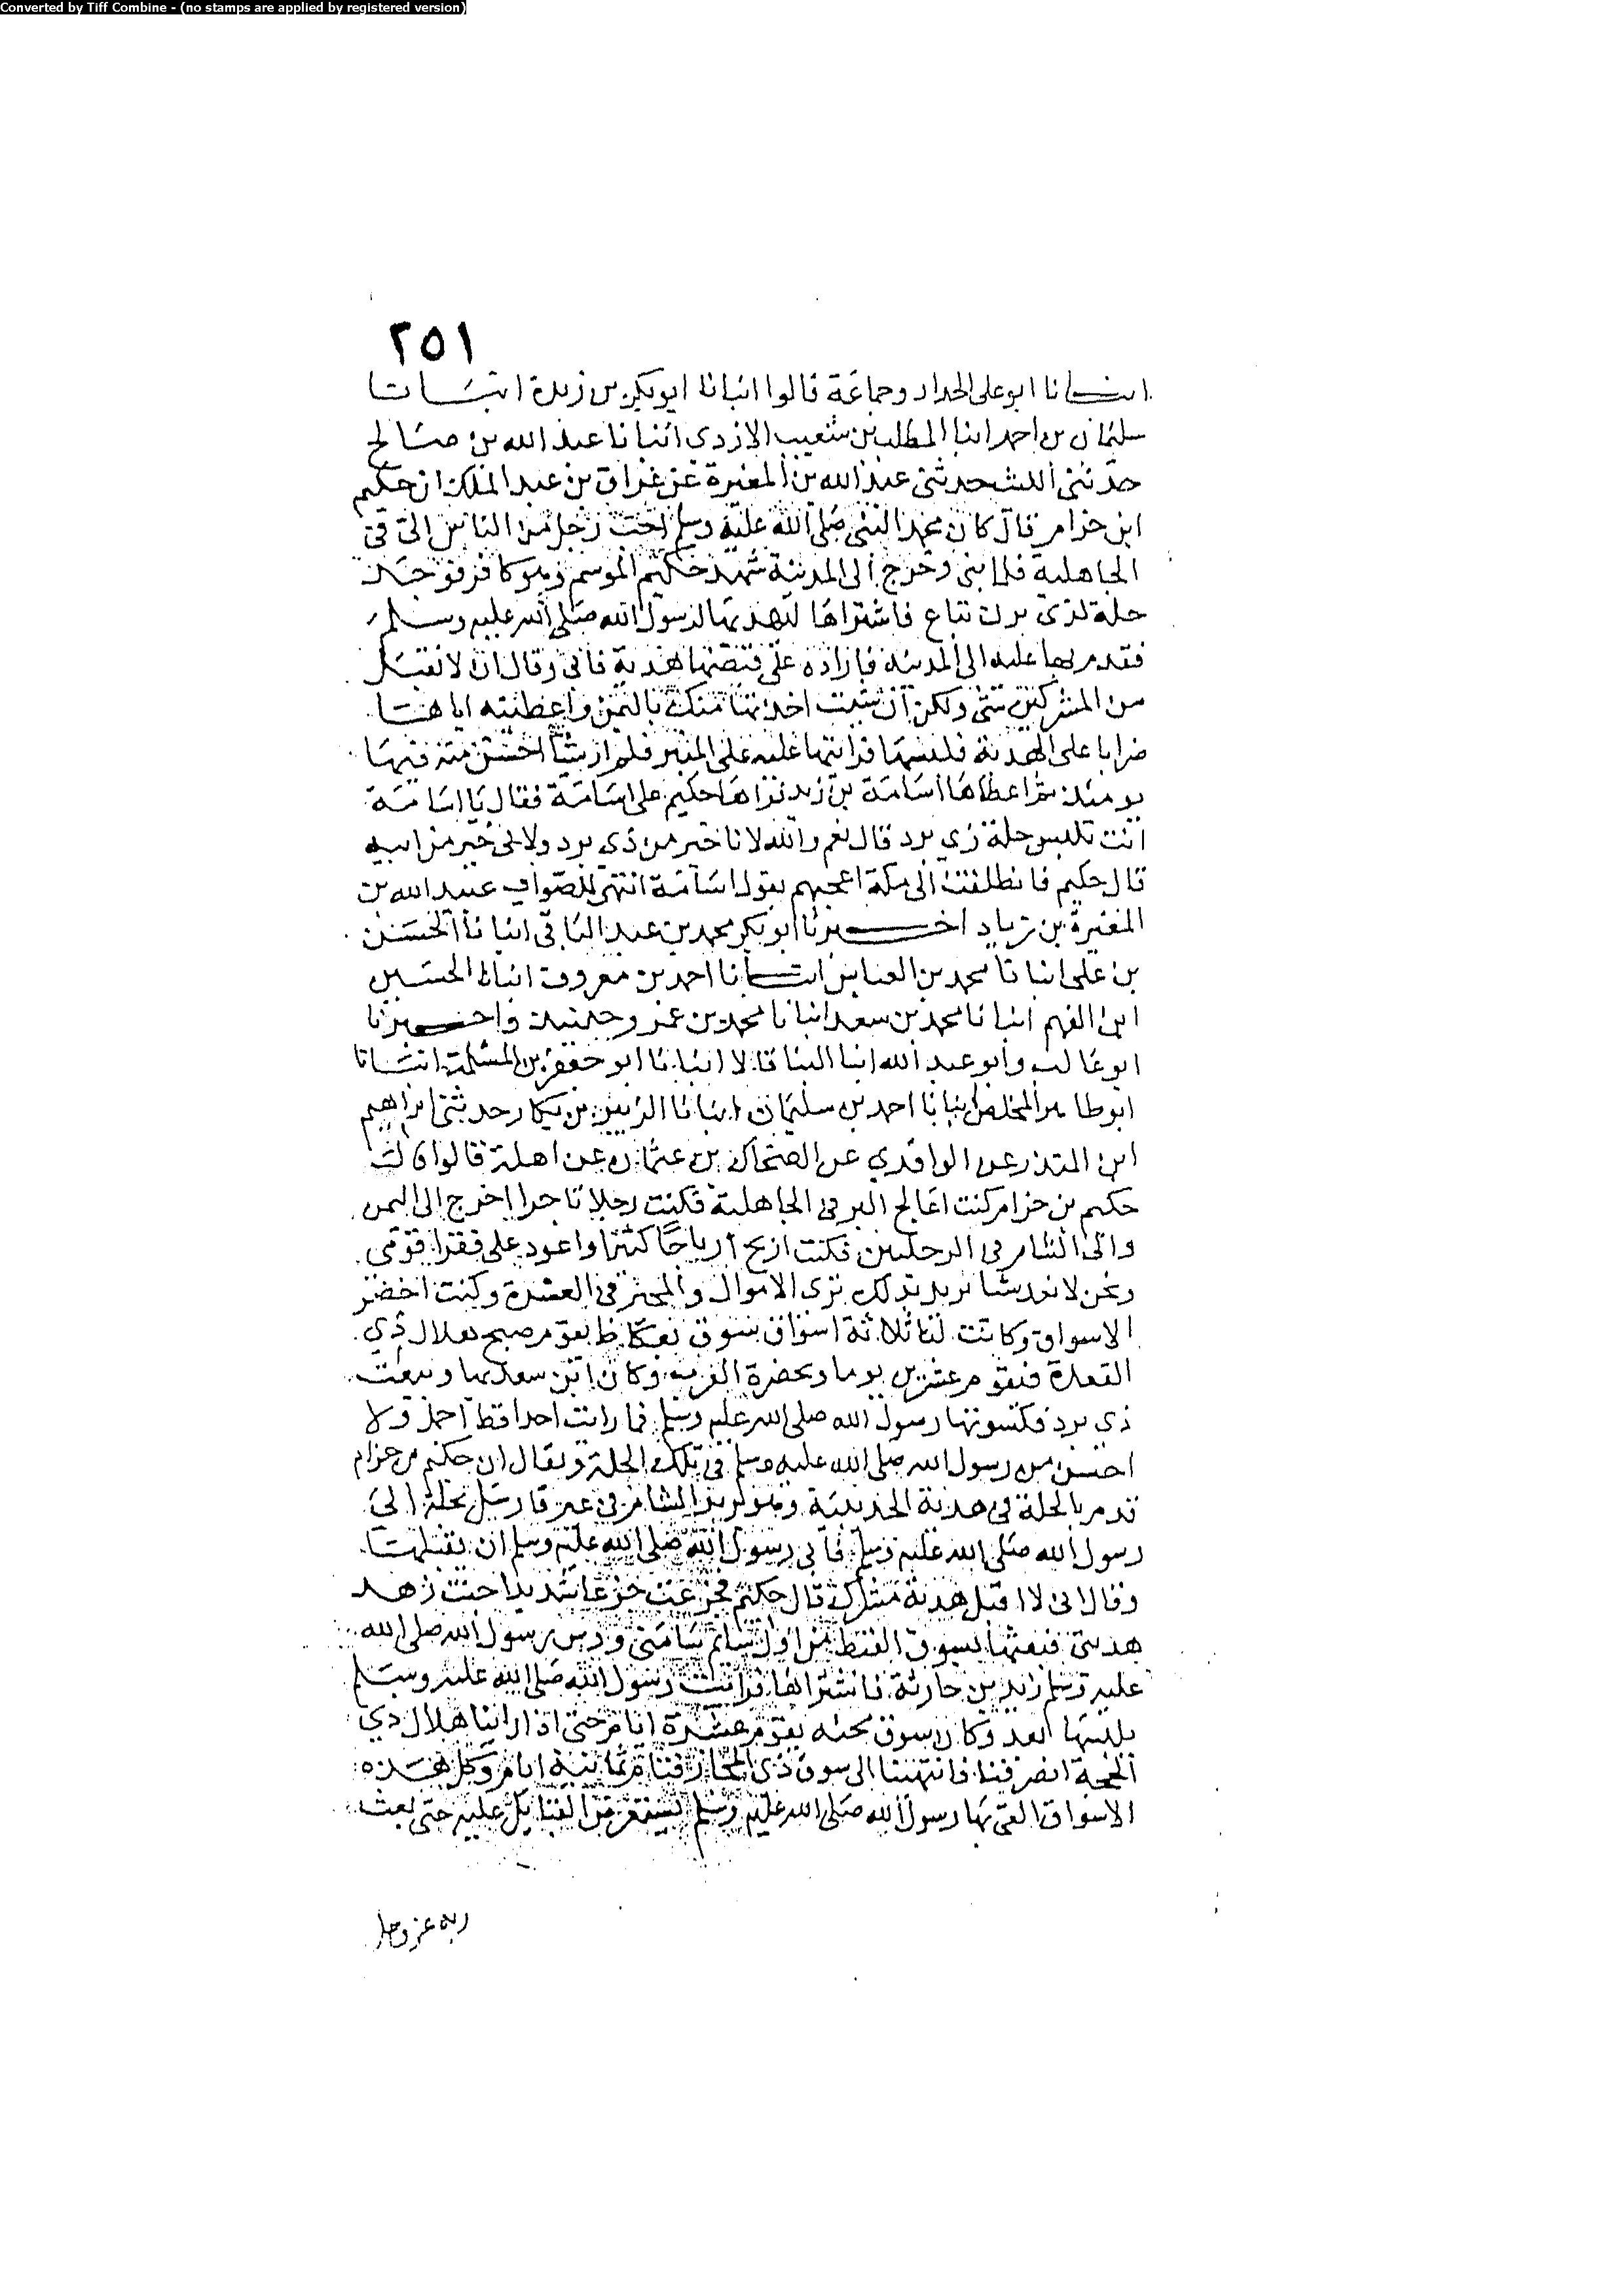 Converted by Tiff Combine - (no stamps are applied by registered version)
٢٥١
انبانا ابو على الحداد وجماعة قالوا انبانا ابو بكر بن زيدة انبانا
سليمان بن احمد انبا المطلب بن شعيب الازدي انبانا عبد الله بن صالح
حدثنى الليث حدثنى عبد الله بن المغيرة عن عراق بن عبد الملك ان حكيم
ابن حزام قال كان محمد النبى صلى الله عليه وسلم احب رجل من الناس الى فى
الجاهلية فلما نبى وخرج الى المدينة شهد حكيم الموسم وهو كافر فوجد
حلة لذى يزن تباع فاشتراها ليهديها لرسول الله صلى الله عليه وسلم
فقدم بها عليه الى المدينة فازاده على قبضها هدية فابى وقال انا لا نقبل
من المشركين شى ولكن ان شيت اخذتها منك بالثمن واعطيته اياها
على الهدية فلبسها فرايتها عليه على المنبر فلم ار شيا احسن منه فيها
يومئذ ثم اعطاها اسامة بن زيد فراها حكيم على اسامة فقال يا اسامة
انت تلبس حلة ذي يزد قال نعم والله لانا خير من ذي يزد ولابى خير من ابيه
قال حكيم فانطلقت الى مكة اعجبهم بقول اسامة انتهى الصواب عبيد الله بن
المغيرة بن زياد اخبرنا ابو بكر محمد بن عبد الباقى انبانا الحسن
بن على انبانا محمد بن العباس انبانا احمد بن معروف انبانا الحسين
ابن الفهم انبانا محمد بن سعد انبانا محمد بن عمر وحدثنيه واخبرنا
ابو غالب وابو عبد الله ابنا البنا قالا انبانا ابو جعفر بن المسلمة انبانا
ابو طاهر المخلص انبانا احمد بن سليمان انبانا الزبير بن بكار حدثنى ابراهيم
ابن المنذر عن الواقدي عن الضحاك بن عثمان عن اهله قالوا قال
حكيم بن حزام كنت اعالج البز فى الجاهلية فكنت رجلا تاجرا اخرج الى اليمن
والى الشام فى الرحلتين فكنت اربح ارباحا كثيرا واعود على فقرا قومى
ونحن لا نعبد شيا نريد بذلك ثرى الاموال والمحبة فى العشيرة وكنت احضر
الاسواق وكانت لنا ثلاثة اسواق بسوق بعكاظ يقوم صبح هلال ذي
القعدة فيقوم عشرين يوما ويحضره العرب وكان
ذي يزد فكسوتها رسول الله صلى الله عليه وسلم فما رايت احدا قط اجمل ولا
احسن من رسول الله صلى الله عليه وسلم فى تلك الحلة ويقال ان حكيم بن حزام
قدم بالحلة فى هدنة الحديبية وهو يريد الشام فى عير فارسل بحلة الى
رسول الله صلى الله عليه وسلم فابى رسول الله صلى الله عليه وسلم ان يقبلها
وقال انى لا اقبل هدية مشرك قال حكيم فجزعت جزعا شديدا حيث زهد
هديتى فبعتها بسوق النبط من اول سايم سامنى ودس رسول الله صلى الله
عليه وسلم زيد بن حارثة فاشتراها فرايت رسول الله صلى الله عليه وسلم
يلبسها بعد وكان سوق مجنه يقوم عشرة ايام حتى اذا راينا هلال ذي
الحجة انصرفنا فانتهينا الى سوق ذى المجاز فقام ثمانية ايام وكل هذه
الاسواق القى بها رسول الله صلى الله عليه وسلم يستعرض القبايل عليه حتى بعث
ربه عز وجل